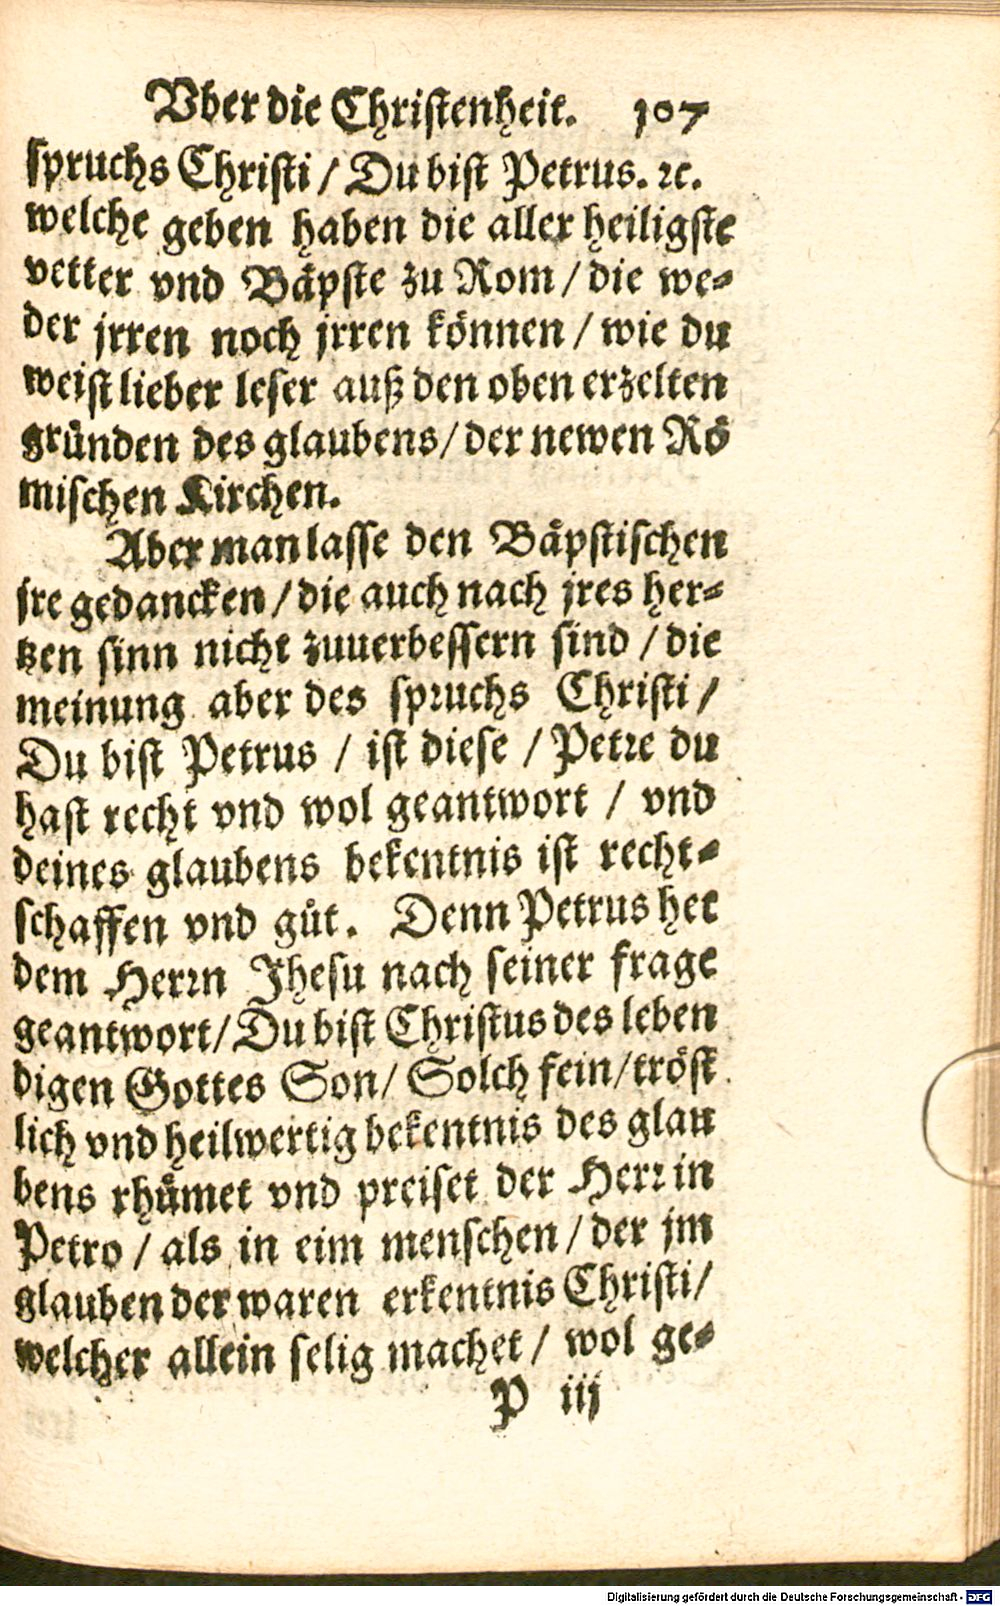 Vber die Christenheit. 107
spruchs Christi / Du bist Petrus. ꝛc.
welche geben haben die aller heiligste
vetter vnd Bäpste zu Rom / die we⸗
der jrren noch jrren können / wie du
weist lieber leser auß den oben erzelten
gründen des glaubens / der newen Rö
mischen Kirchen.
Aber man lasse den Bäpstischen
jre gedancken / die auch nach jres her⸗
tzen sinn nicht zuuerbessern sind / die
meinung aber des spruchs Christi /
Du bist Petrus / ist diese / Petre du
hast recht vnd wol geantwort / vnd
deines glaubens bekentnis ist recht⸗
schaffen vnd gůt. Denn Petrus het
dem Herrn Jhesu nach seiner frage
geantwort / Du bist Christus des leben
digen Gottes Son / Solch fein / tröst
lich vnd heilwertig bekentnis des glau
bens rhümet vnd preiset der Herr in
Petro / als in eim menschen / der jm
glauben der waren erkentnis Christi /
welcher allein selig machet / wol ge⸗
P iij
Digitalisierung gefördert durch die Deutsche Forschungsgemeinschaft - DFG